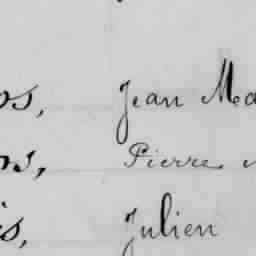 os, Jean Ma
os, Pierre
is, Julien